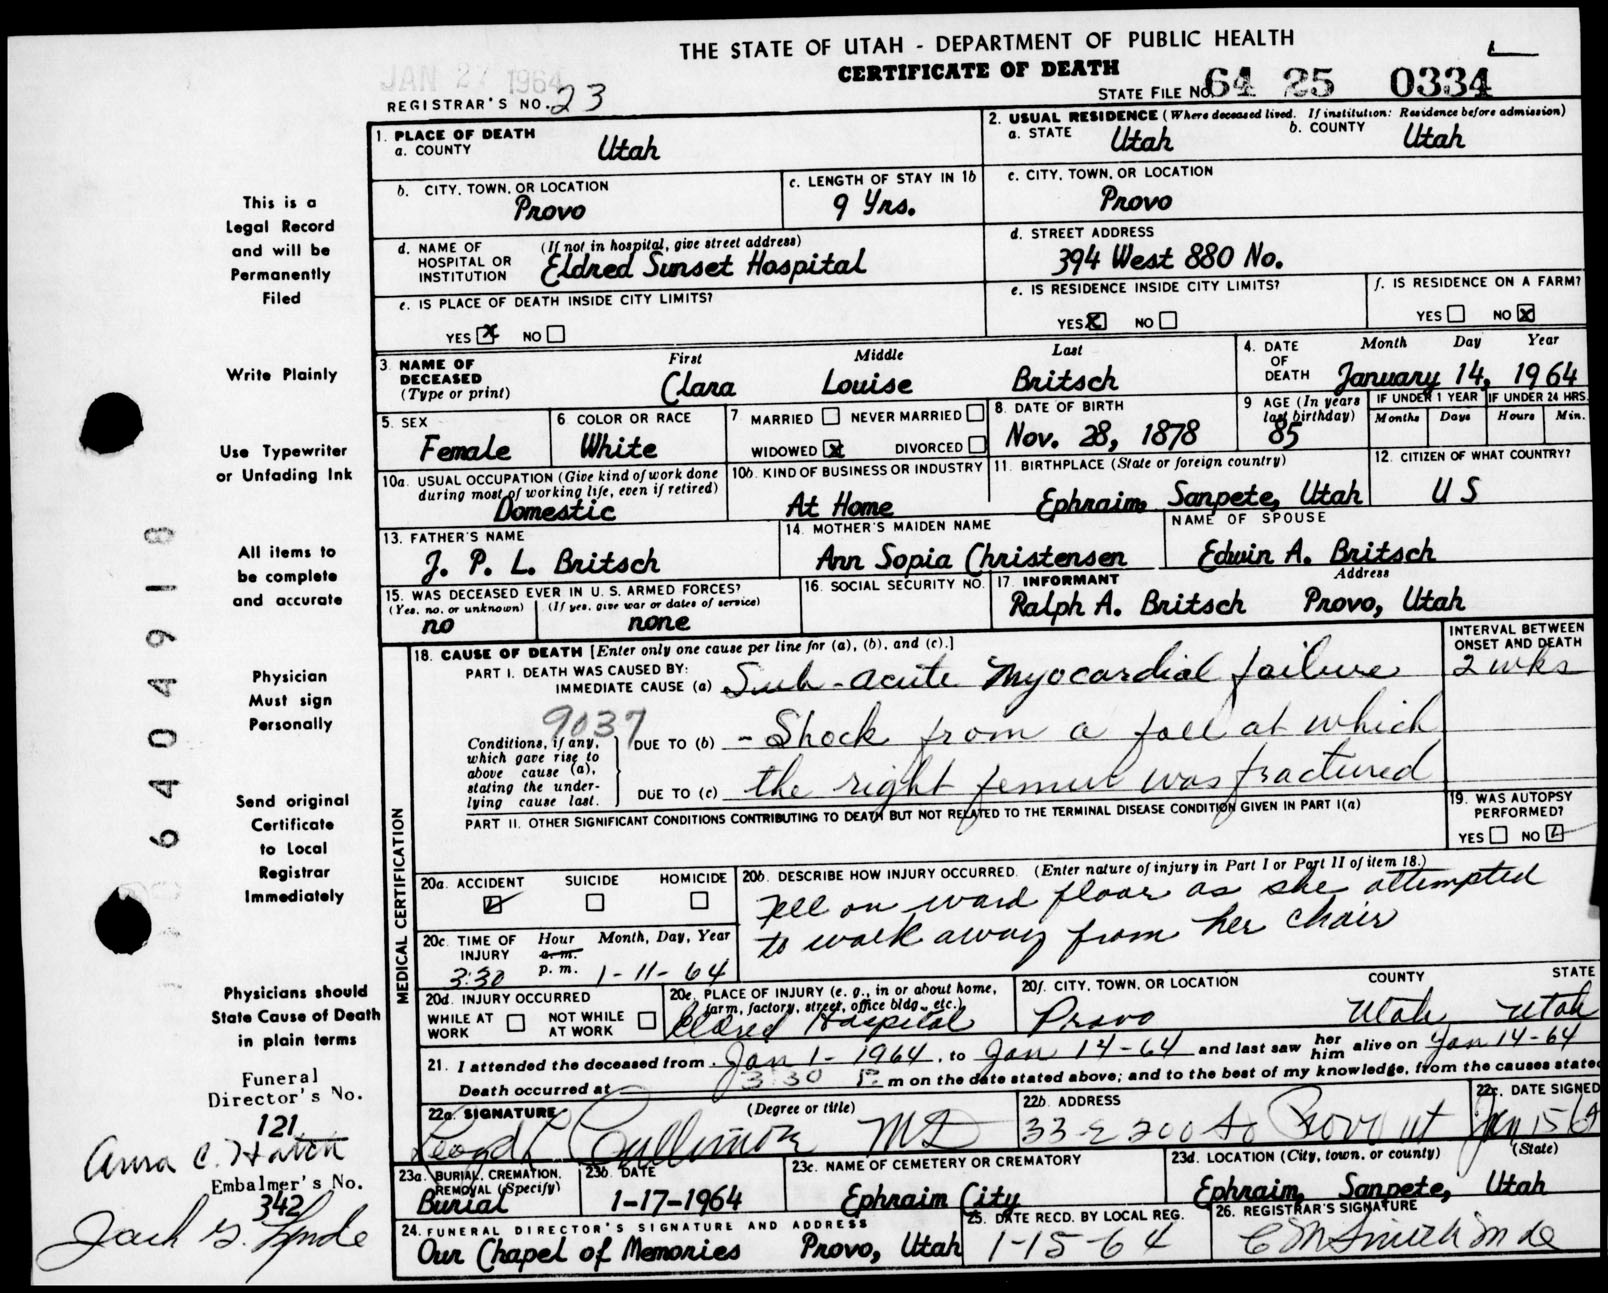 THE STATE OF UTAH - DEPARTMENT OF PUBLIC HEALTH
CERTIFICATE OF DEATH
JAN 27 1964
STATE FILE NO. 64 25 0334
REGISTRAR'S NO. 23
1. PLACE OF DEATH
a. COUNTY Utah
2. USUAL RESIDENCE (Where deceased lived. If institution: Residence before admission)
a. STATE Utah b. COUNTY Utah
b. CITY, TOWN, OR LOCATION Provo
c. LENGTH OF STAY IN 1b 9 Yrs.
c. CITY, TOWN, OR LOCATION Provo
d. NAME OF HOSPITAL OR INSTITUTION (If not in hospital, give street address) Eldred Sunset Hospital
d. STREET ADDRESS 394 West 880 No.
e. IS PLACE OF DEATH INSIDE CITY LIMITS? YES X NO
e. IS RESIDENCE INSIDE CITY LIMITS? YES X NO
f. IS RESIDENCE ON A FARM? YES NO X
3. NAME OF DECEASED (Type or print) First Middle Last
Clara Louise Britsch
4. DATE OF DEATH Month Day Year
January 14, 1964
5. SEX Female
6 COLOR OR RACE White
7 MARRIED NEVER MARRIED WIDOWED X DIVORCED
8. DATE OF BIRTH Nov. 28, 1878
9 AGE (In years last birthday) 85
IF UNDER 1 YEAR Months Days
IF UNDER 24 HRS. Hours Min.
10a. USUAL OCCUPATION (Give kind of work done during most of working life, even if retired) Domestic
10b. KIND OF BUSINESS OR INDUSTRY At Home
11. BIRTHPLACE (State or foreign country) Ephraim, Sanpete, Utah
12. CITIZEN OF WHAT COUNTRY? U S
13. FATHER'S NAME J. P. L. Britsch
14. MOTHER'S MAIDEN NAME Ann Sopia Christensen
NAME OF SPOUSE Edwin A. Britsch
15. WAS DECEASED EVER IN U. S. ARMED FORCES? (Yes, no, or unknown) no (If yes, give war or dates of service) none
16. SOCIAL SECURITY NO.
17. INFORMANT Address
Ralph A. Britsch Provo, Utah
MEDICAL CERTIFICATION
18. CAUSE OF DEATH [Enter only one cause per line for (a), (b), and (c).]
INTERVAL BETWEEN ONSET AND DEATH
PART I. DEATH WAS CAUSED BY:
IMMEDIATE CAUSE (a) Sub-acute Myocardial failure 2 wks
9037
Conditions, if any, which gave rise to above cause (a), stating the underlying cause last.
DUE TO (b) - Shock from a fall at which
DUE TO (c) the right femur was fractured
PART II. OTHER SIGNIFICANT CONDITIONS CONTRIBUTING TO DEATH BUT NOT RELATED TO THE TERMINAL DISEASE CONDITION GIVEN IN PART I(a)
19. WAS AUTOPSY PERFORMED? YES NO
20a. ACCIDENT SUICIDE HOMICIDE
20b. DESCRIBE HOW INJURY OCCURRED. (Enter nature of injury in Part I or Part II of item 18.)
Fell on ward floor as she attempted
to walk away from her chair
20c. TIME OF INJURY Hour a.m. p.m. Month, Day, Year
3:30 1-11-64
20d. INJURY OCCURRED WHILE AT WORK NOT WHILE AT WORK
20e. PLACE OF INJURY (e. g., in or about home, farm, factory, street, office bldg., etc.) Eldred Hospital
20f. CITY, TOWN, OR LOCATION COUNTY STATE
Provo Utah Utah
21. I attended the deceased from Jan 1-1964, to Jan 14-64 and last saw her him alive on Jan 14-64
Death occurred at 3:30 P. m on the date stated above; and to the best of my knowledge, from the causes stated
22a. SIGNATURE (Degree or title) Lloyd L Cullimore MD
22b. ADDRESS 33 E 200 So Provo ut
22c. DATE SIGNED Jan 15 64
23a. BURIAL, CREMATION, REMOVAL (Specify) Burial
23b. DATE 1-17-1964
23c. NAME OF CEMETERY OR CREMATORY Ephraim City
23d. LOCATION (City, town, or county) (State)
Ephraim, Sanpete, Utah
24. FUNERAL DIRECTOR'S SIGNATURE AND ADDRESS
Our Chapel of Memories Provo, Utah
25. DATE RECD. BY LOCAL REG. 1-15-64
26. REGISTRAR'S SIGNATURE
This is a
Legal Record
and will be
Permanently
Filed
Write Plainly
Use Typewriter
or Unfading Ink
All items to
be complete
and accurate
Physician
Must sign
Personally
Send original
Certificate
to Local
Registrar
Immediately
Physicians should
State Cause of Death
in plain terms
Funeral
Director's No.
121
Anna C. Hatch
Embalmer's No.
342
Jack G. Lynde
6404918